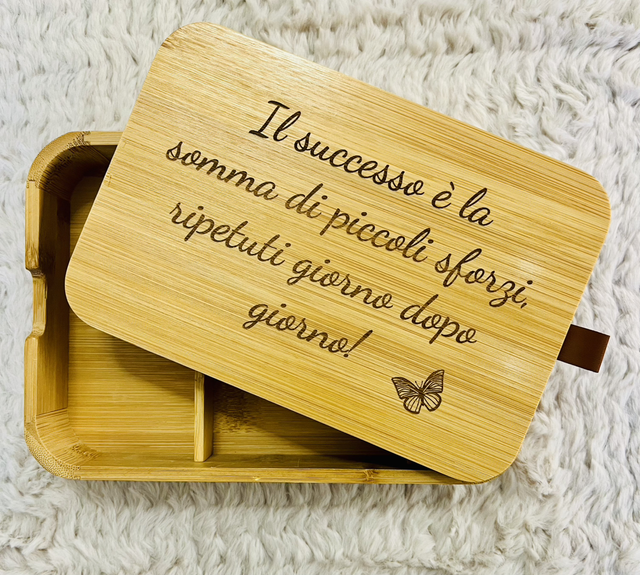 Il successo è la
somma di piccoli sforzi,
ripetuti giorno dopo
giorno!